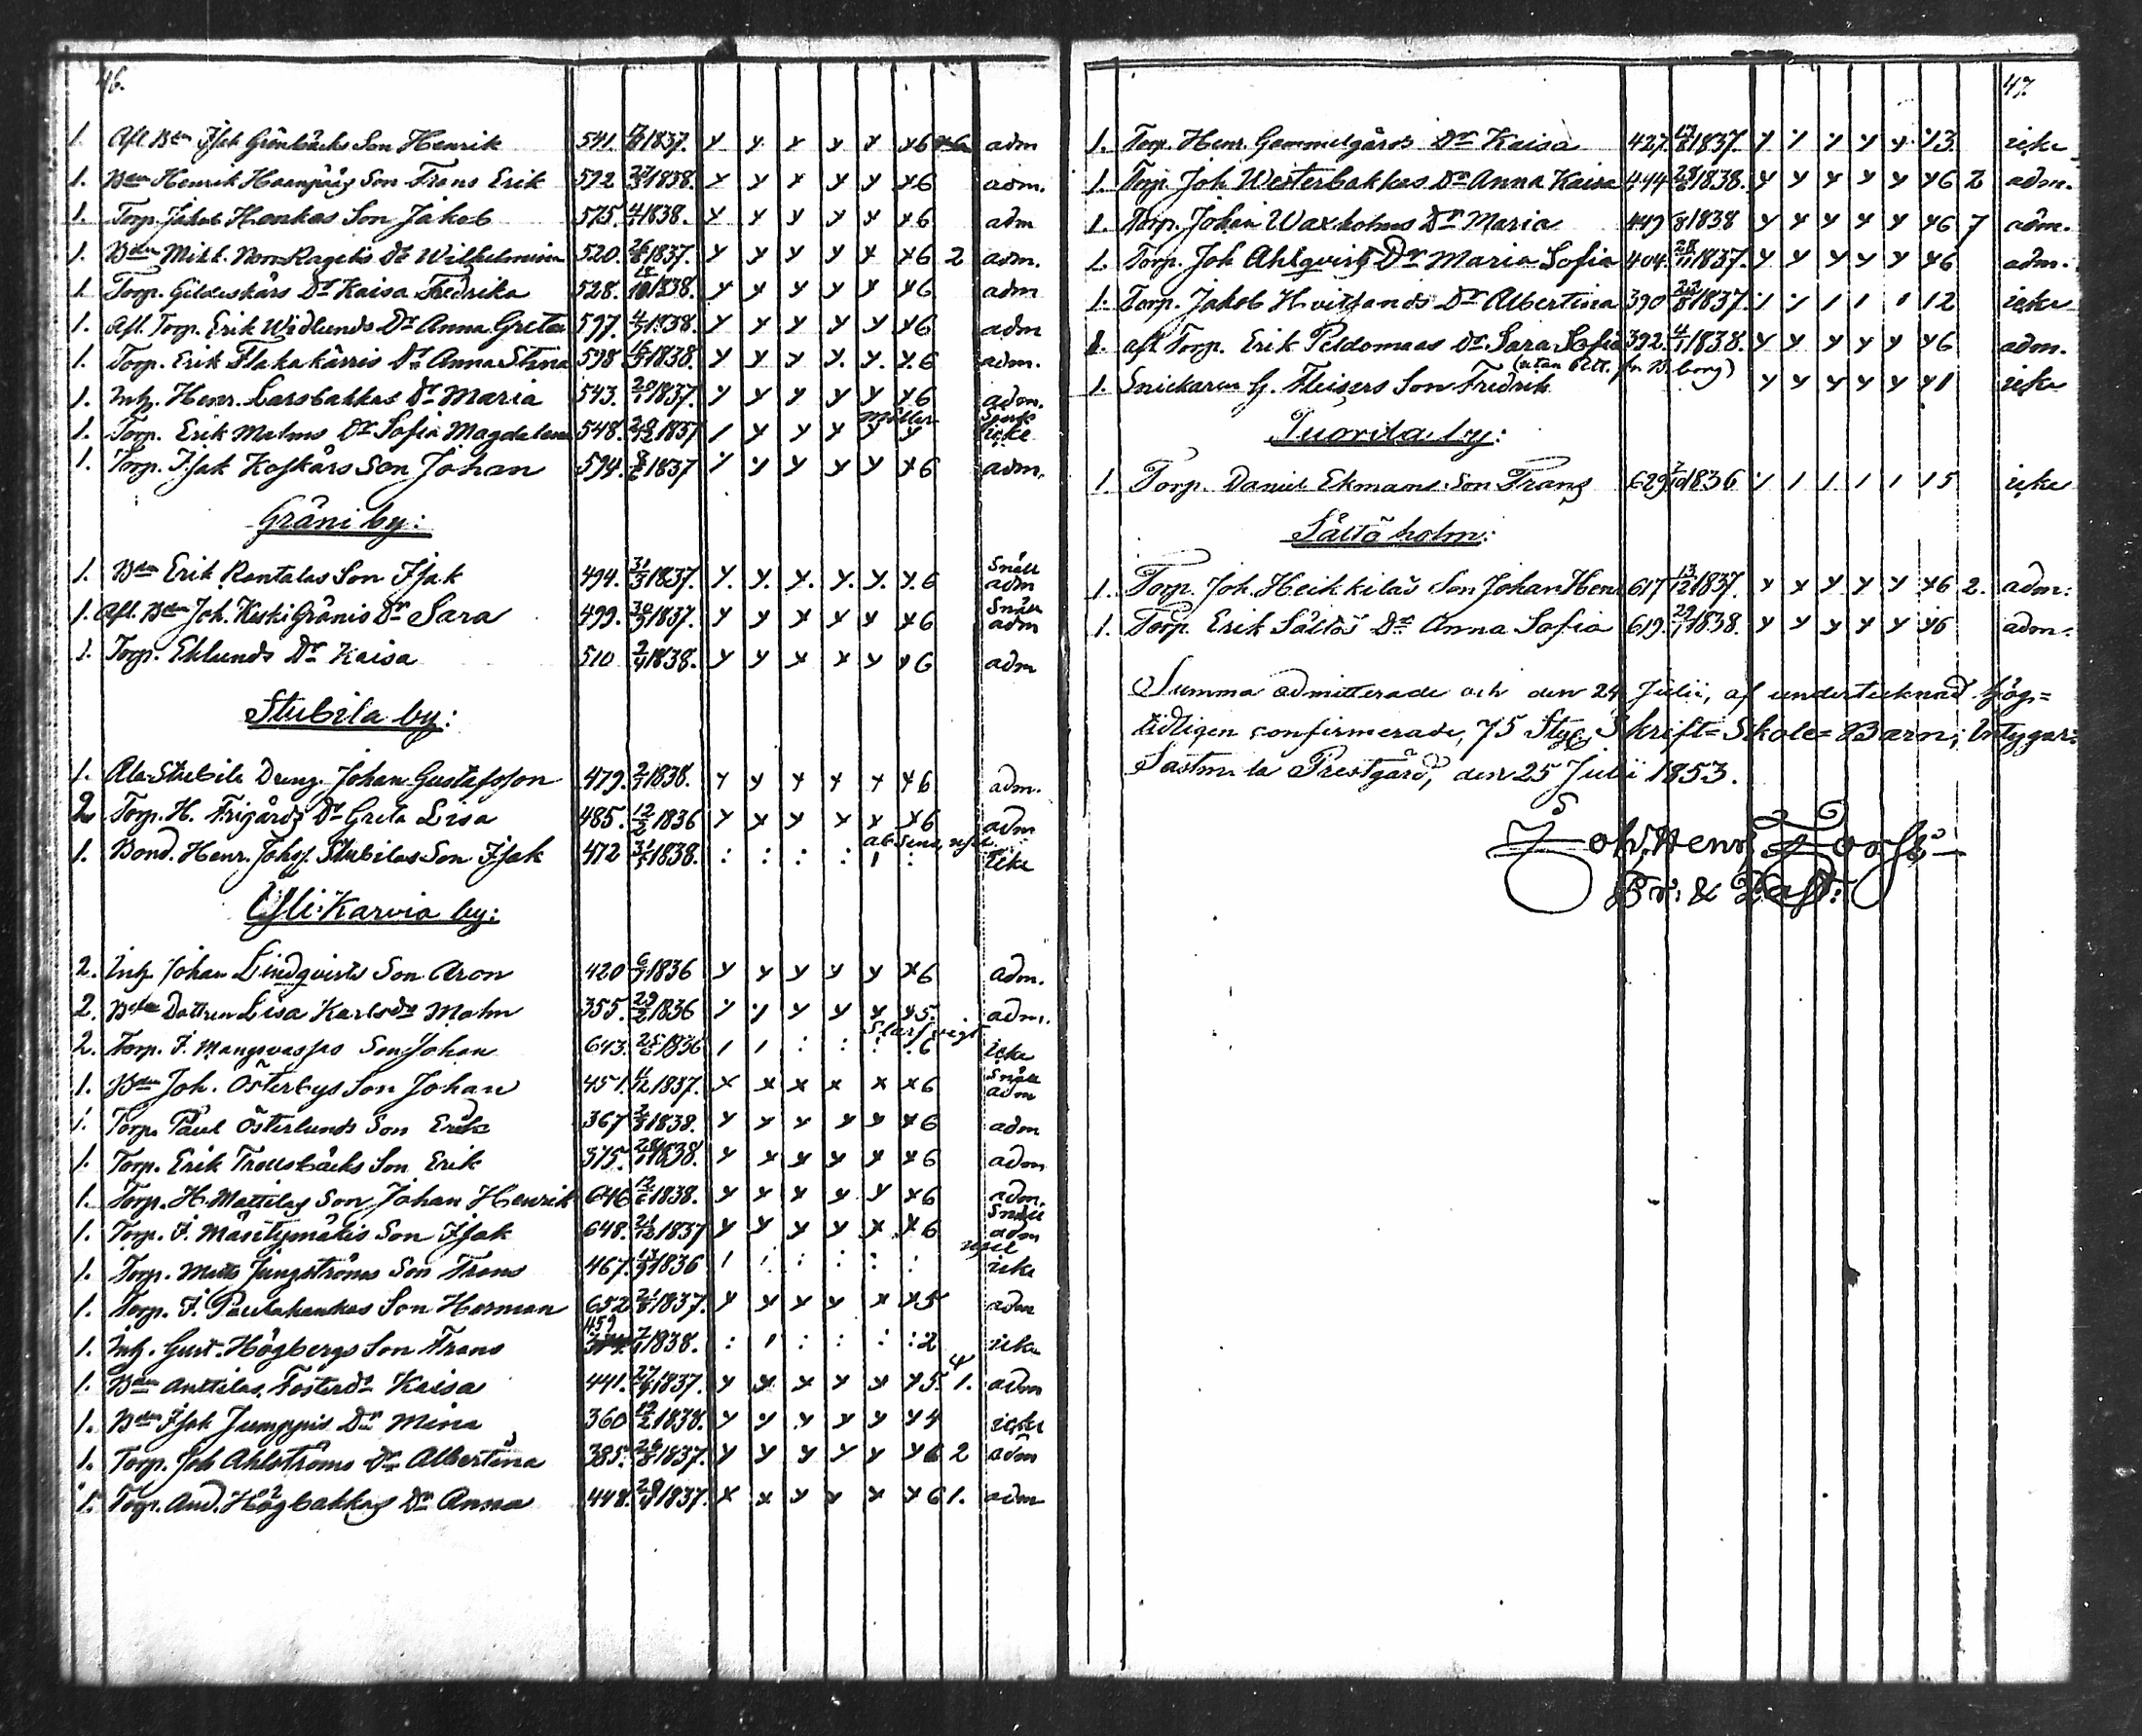 46.
1. Afl. Bdn Isak Grönbäcks Son Henrik 541. 1837. y y y y y y6 adm
1. Bdn Henrik Son Frans Erik 592 1838. y y y y y y6 adm.
1. Torp. Jakob Hankas Son Jakob 575. 1838. y y y y y y6 adm
1. Bdn Mikl. Dr Wilhelmina 520. 26/8 1837. y y y y y y6 2 adm.
1. Torp. Gildeskårs Dr Kaisa Fredrika 528. 1838. y y y y y y6 adm
1. Afl. Torp. Erik Widlunds Dr Anna Greta 597. 1838. y y y y y y6 adm
1. Torp. Erik Flakakärris Dr Anna Stina 598 1838. y y y y. y. y.6 adm.
1. Inh. Henr. Larsbakkas Dr Maria 543. 1837. y y y y y y6 adm.
1. Torp. Erik Malms Dr Sofia Magdalena 548. 1837 1 y y y y y icke
1. Torp. Isak Koskårs Son Johan 594. 1837 y y y y y y6 adm.
Gråni by:
1. Bdn Erik Rantalas Son Isak 494. 31/3 1837. y. y. y. y. y. y.6 Snäll adm
1. Afl. Bdn Joh. Keski Grånis Dr Sara 499. 30/3 1837. y y y y y y6 Snäll adm
1. Torp. Eklunds Dr Kaisa 510 1838. y y y y y y6 adm
Stubila by:
1. Ala-Stubila Dreng Johan Gustafsson 479. 1838. y y y y y y6 adm.
2. Torp. H. Frigårds Dr Greta Lisa 485. 12/2 1836 y y y y y y6 adm
1. Bond. Henr. Johsf. Stubilas Son Isak 472 1838. : : : : icke
Yli-Karvia by:
2. Inh Johan Lindqvists Son Aron 420 1836 y y y y y y6 adm.
2. Bdn Dottren Lisa Karlsdr Malm 355. 29/2 1836 y y y y y y5. adm.
2. Torp. J. Son Johan 643. 1836 1 1 : : : :6 icke
1. Bdn Joh. Österbys Son Johan 451. 1837. x x x x x x6 Snäll adm
1. Torp. Paul Österlunds Son Erik 367 1838. y y y y y y6 adm
1. Torp. Erik Trollsbäcks Son Erik 375. 1838. y y y y y y6 adm
1. Torp. H. Mattilas Son Johan Henrik 646 1838. y y y y y y6 adm.
1. Torp. J. Mäntymäkis Son Isak 648. 21/12 1837 y y y y y y6 Snäll adm
1. Torp. Matts Jungströms Son Frans 467. 1836 1 : : : : : icke
1. Torp. J. Paulahankas Son Herman 652 1837. y y y y y y5 adm
1. Inh. Gust. Högbergs Son Frans 459 1838. : 1 : : : :2 icke
1. Bdn Anttilas Fosterdr Kaisa 441. 1837. y y y y y y5. 1. adm
1. Bdn Isak Jumppis Dr Mina 360 1838. y y y y y y4 icke
1. Torp. Joh Ahlströms Dr Albertina 385. 1837. y y y y y y6 2 adm
1. Torp. And. Högbakkas Dr Anna 448. 1837. y y y y y y6 1. adm
47.
1. Torp. Henr. Gammelgårds Dr Kaisa 427. 1837. y y y y y y3. icke
1. Torp. Joh Westerbakkas Dr Anna Kaisa 444 1838. y y y y y y6 2 adm.
1. Torp. Johan Waxholms Dr Maria 449 1838 y y y y y y6 7 adm.
1. Torp. Joh Ahlqvists Dr Maria Sofia 404. 28/11 1837. y y y y y y6 adm.
1. Torp. Jakob Hvitsands Dr Albertina 390 1837. y y 1 1 1 12 icke
1. afl Torp. Erik Peldomaas Dr Sara Sofia 392. 4/1 1838. y y y y y y6 adm.
(utan att. fr. B:borg)
1. Snickaren G. Fleisers Son Fredrik y y y y y y1 icke
Tuorila by:
1. Torp. Daniel Ekmans Son Frans 629 1836 y 1 1 1 1 15 icke
Sältö holm:
1. Torp. Joh. Heikkiläs Son Johan Henr 617 13/12 1837. y y y y y y6 2. adm:
1. Torp. Erik Sältös Dr Anna Sofia 619. 29/1 1838. y y y y y y6 adm:
Summa admitterade och den 24 Julii, af undertecknad hög=
tidligen confirmerade, 75 Styg Skrift=Skole=Barn; Intygar:
Sastmola Prestgård, den 25 Julii 1853.
Joh. Henr.
Pr: & Past: